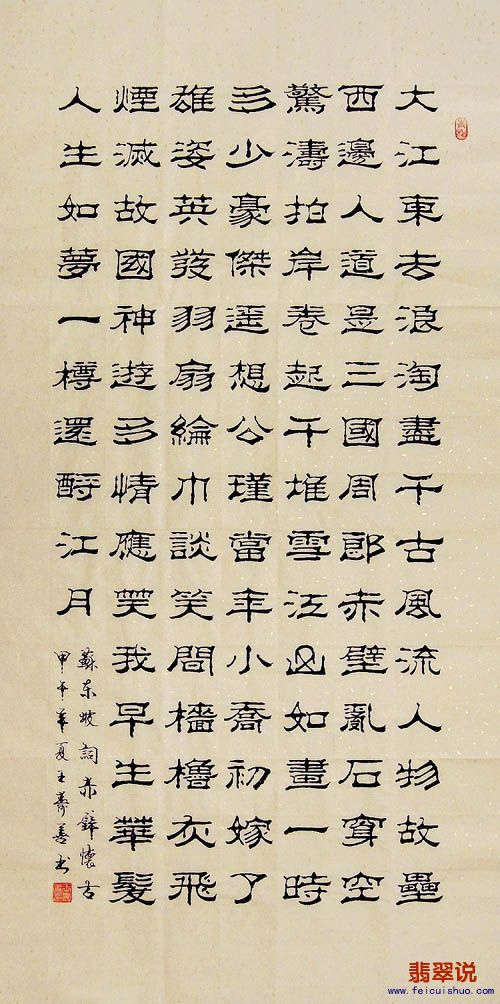 大江東去浪淘盡千古風流人物故壘
西邊人道是三國周郎赤壁亂石穿空
驚濤拍岸卷起千堆雪江山如畫一時
多少豪傑遥想公瑾當年小喬初嫁了
雄姿英發羽扇綸巾談笑間檣櫓灰飛
煙滅故國神遊多情應笑我早生華髮
人生如夢一樽還酹江月
蘇东坡詞赤壁懷古
甲午夏王善书
翡翠说
www.feicuishuo.com